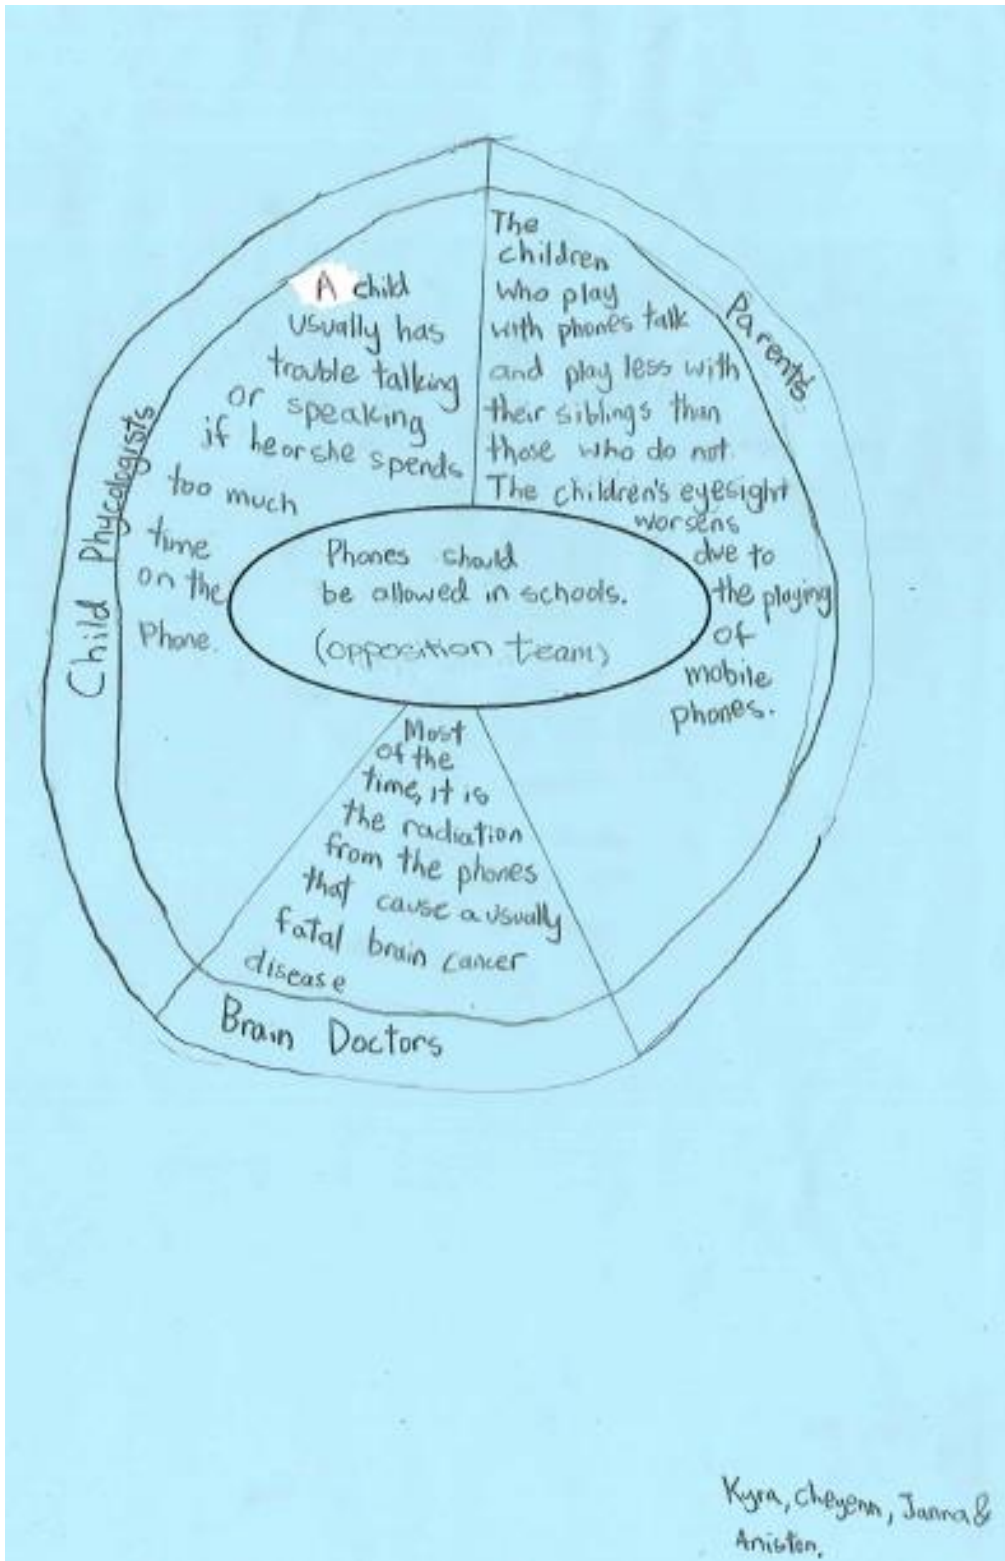 Child Phycologists
A child
usually has
trouble talking
or speaking
if he or she spends
too much
time
on the
phone.
Parents
The
children
who play
with phones talk
and play less with
their siblings than
those who do not.
The children's eyesight
worsens
due to
the playing
of
mobile
phones.
Phones should
be allowed in schools.
(opposition team)
Most
of the
time, it is
the radiation
from the phones
that cause a usually
fatal brain cancer
disease
Brain Doctors
Kyra, Cheyenn, Janna &
Aniston.